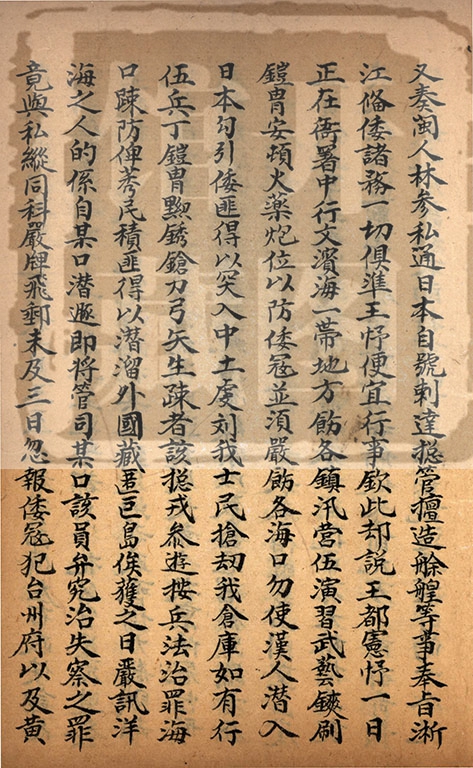 又奏閩人林參私通日本自號刺達揔管擅造艅艎等事奉旨淅
江俻倭諸務一切俱準王忬便宜行事欽此却說王都憲忬一日
正在衙署中行文濱海一帶地方飭各鎮汛營伍演習武藝鍊刷
鎧胄安頓火藥炮位以防倭冦並須嚴飭各海口勿使漢人潜入
日本勾引倭匪得以突入中土虔刘我士民搶刼我倉庫如有行
伍兵丁鎧胄黦銹鎗刀弓矢生疎者該揔戎叅遊按兵法治罪海
口踈防俾莠民積匪得以潜溜外國藏匿巨島俟獲之日嚴訊洋
海之人的係自某口潜遯即將管司某口該員弁宄治失察之罪
竟與私縱同科嚴牌飛郵未及三日忽報倭冦犯台州府以及黄